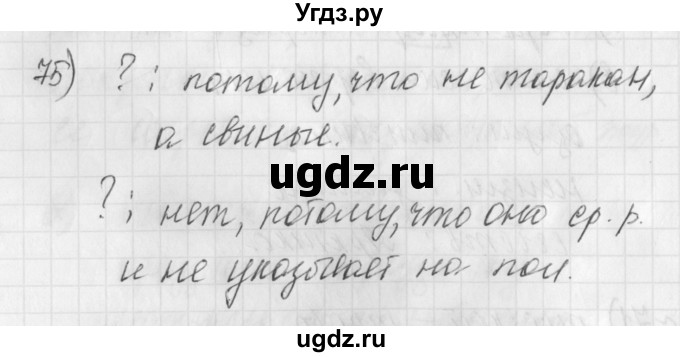 Угдз.ру
75) ? : потому, что не таракан,
а свиные.
ugdz.ru
? : нет, потому, что оно ср. р.
и не указывает на пол.
ugdz.ru